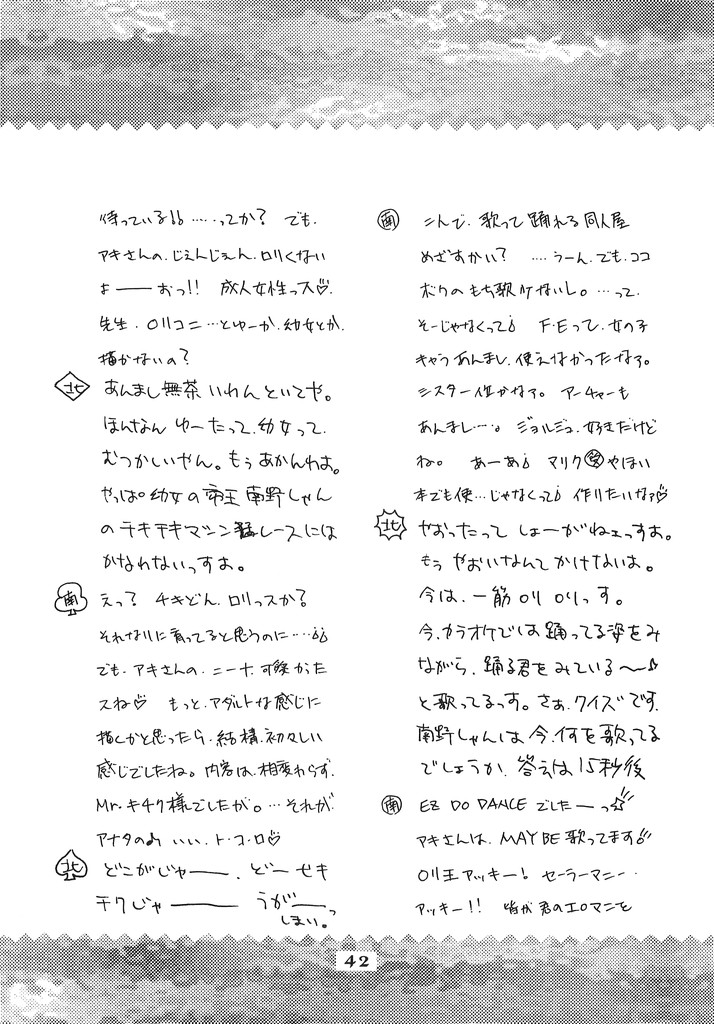 南 ニんで、歌って踊れる同人屋
めざすかい? ‥‥うーん、でも、ココ
ボクのもち歌ノナないし。…って、
そーじゃなくって F・Eって、女の子
キャラあんまし、使えなかったなァ。
シスター位かなァ。アーチャーも
あんまし…。ジョルジュ、好きだけど
ね。あーあ マリク やほい
本でも使…じゃなくって 作りたいなァ♡
北 やおったって しょーがねェっすよ。
もぅ やおいなんて かけないよ。
今は、一筋ロリ ロリっす。
今、カラオケでは 踊ってる姿をみ
ながら、踊る君をみている〜♪
と歌ってるっす。さぁ、クイズです、
南野しゃんは、今、何を歌ってる
でしょうか、答えは15秒後
南 EZ DO DANCE でしたーっ☆!!
アキさんは、MAYBE歌ってます!!
ロリ王アッキー! セーラーマニー…
アッキー!! 皆が君のエロマニを
待っている!! ‥‥ってか? でも、
アキさんの、じぇんじぇん、ロリくない
よ――おっ!! 成人女性っス♡、
先生、ロリコニ…とゆーか、幼女とか、
描かないの?
北 あんまし無茶 いわんといてや。
ほんなん ゆーたって、幼女って、
むつかしいやん。もぅ あかんわよ。
やっぱ 幼女の帝王 南野しゃん
のチキチキマシン猛レースには
かなわないっすよ。
南 えっ? チキどん、ロリっスか?
それなりに育ってると思うのに‥‥
でも、アキさんの、ニーナ、可愛かった
スね♡ もっと、アダルトな感じに
描くかと思ったら、結構、初々しい
感じでしたね。内容は、相変わらず、
Mr.キチク様でしたが。…それが、
アナタの いい、ト・コ・ロ♡
北 どこがじゃ――、どーせキ
チクじゃ―― うが――っ
しまい。
42